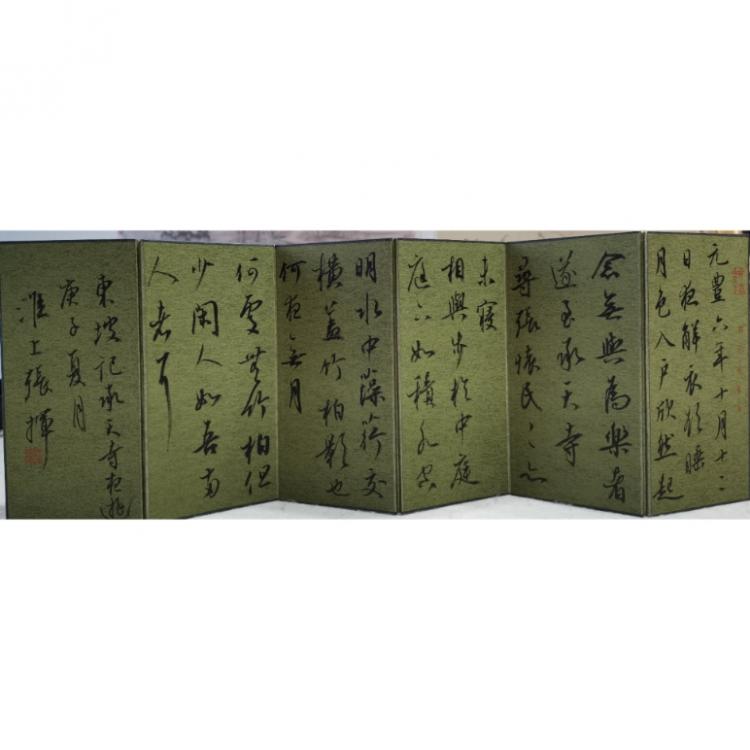 元豐六年十月十二
日夜解衣欲睡
月色入戶欣然起
念無與為樂者
遂至承天寺
尋張懷民〻亦
未寢
相與步於中庭
庭下如積水空
明水中藻荇交
橫蓋竹柏影也
何夜無月
何處無竹柏但
少閑人如吾兩
人者耳
東坡記承天寺夜遊
庚子夏月
淮上張揮